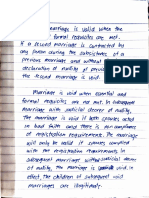 marriage is valid when the
formal requisites are met.
If a second marriage is contracted by
any person during the subsistence of a
previous marriage and without
declaration of nullity of previous
the second marriage is void.
Marriage is void when essential and
formal requisites are not met. In subsequent
marriage with judicial decree of nullity.
The marriage is void if both spouses acted
in bad faith and there is no compliance
of registration requirement. The marriage
will only be valid if spouses complied
on the registration requirements. In
subsequent marriage without judicial decree
of nullity. The marriage is void and in
effect the children of subsequent void
marriages are illegitimate.